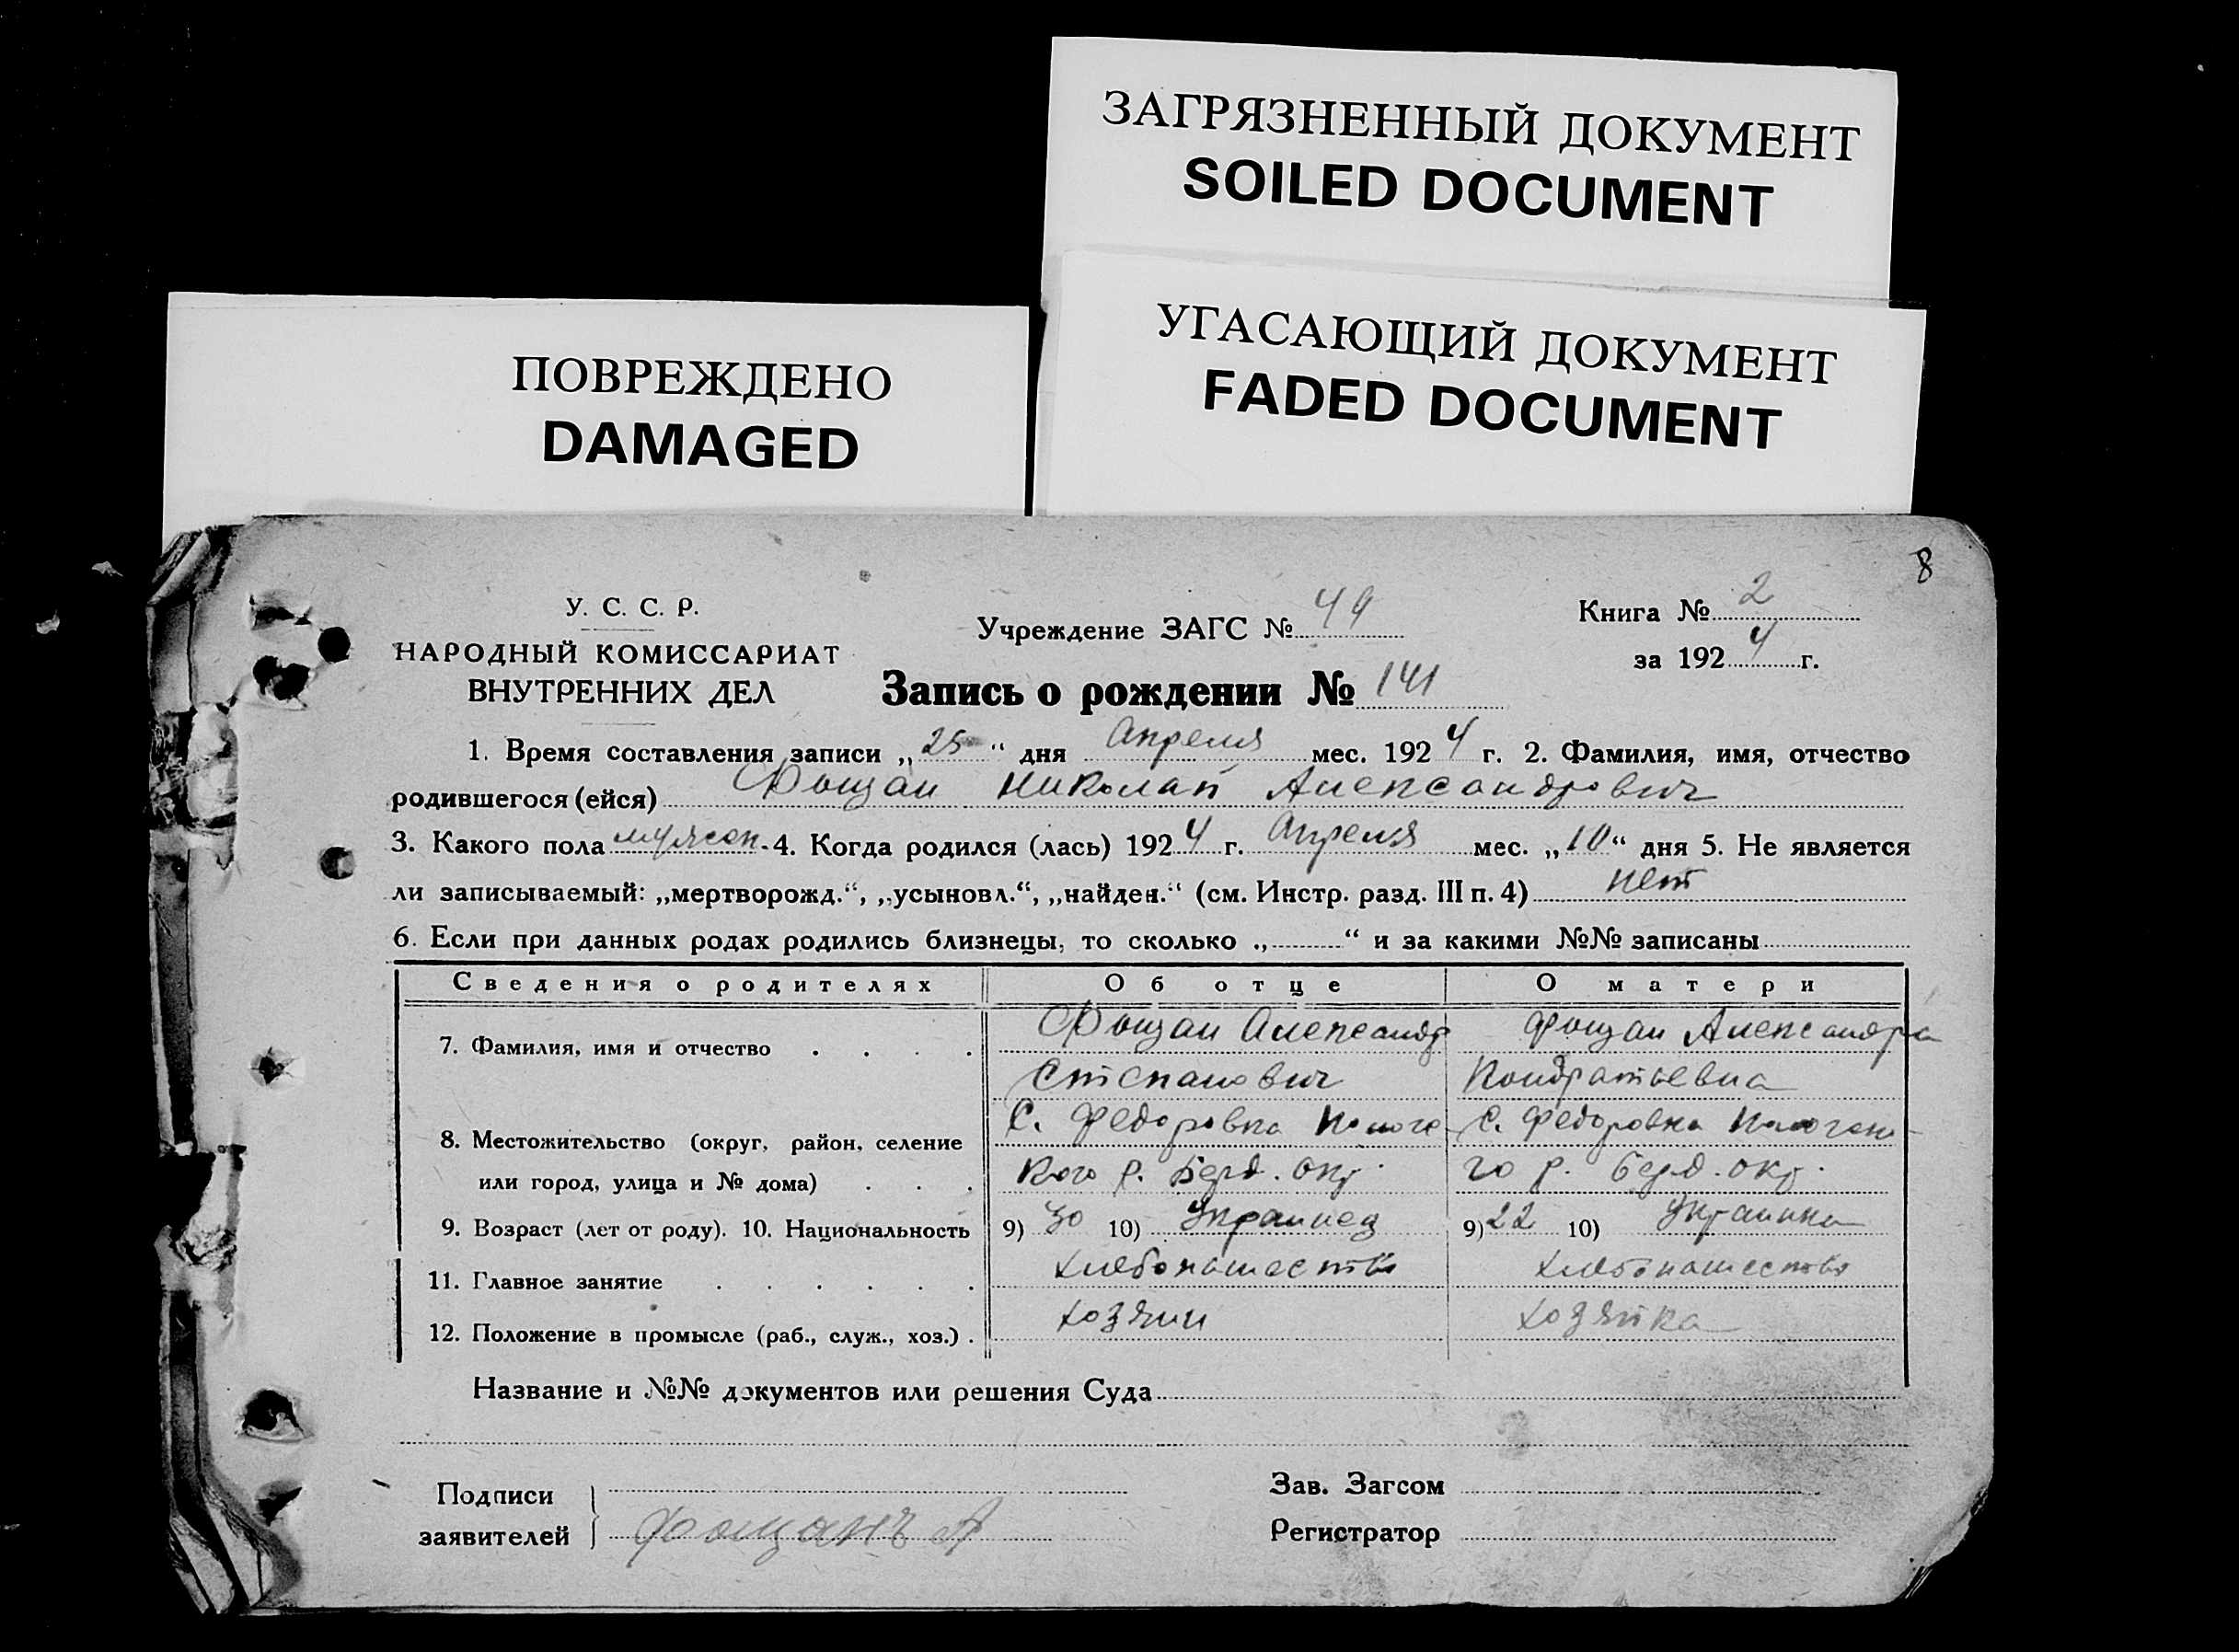 ЗАГРЯЗНЕННЫЙ ДОКУМЕНТ
SOILED DOCUMENT
УГАСАЮЩИЙ ДОКУМЕНТ
FADED DOCUMENT
ПОВРЕЖДЕНО
DAMAGED
8
У. С. С. Р.
НАРОДНЫЙ КОМИССАРИАТ
ВНУТРЕННИХ ДЕЛ
Учреждение ЗАГС № 49
Книга № 2
за 1924 г.
Запись о рождении № 141
1. Время составления записи „25“ дня Апреля мес. 1924 г. 2. Фамилия, имя, отчество
родившегося (ейся) Фощан Николай Александрович
3. Какого пола мужск. 4. Когда родился (лась) 1924 г. Апреля мес. „10“ дня 5. Не является
ли записываемый: „мертворожд.“, „усыновл.“, „найден.“ (см. Инстр. разд. III п. 4) нет
6. Если при данных родах родились близнецы, то сколько „ “ и за какими №№ записаны
Сведения о родителях Об отце О матери
7. Фамилия, имя и отчество Фощан Александр Фощан Александра
Степанович Кондратьевна
С. Федоровка С. Федоровка
8. Местожительство (округ, район, селение
или город, улица и № дома) кого р. Берд. окр. го р. Берд. окр.
9. Возраст (лет от роду). 10. Национальность 9) 30 10) Украинец 9) 22 10) Украинка
11. Главное занятие хлебопашество хлебопашество
12. Положение в промысле (раб., служ., хоз.) хозяин хозяйка
Название и №№ документов или решения Суда
Подписи
заявителей Фощанъ А
Зав. Загсом
Регистратор